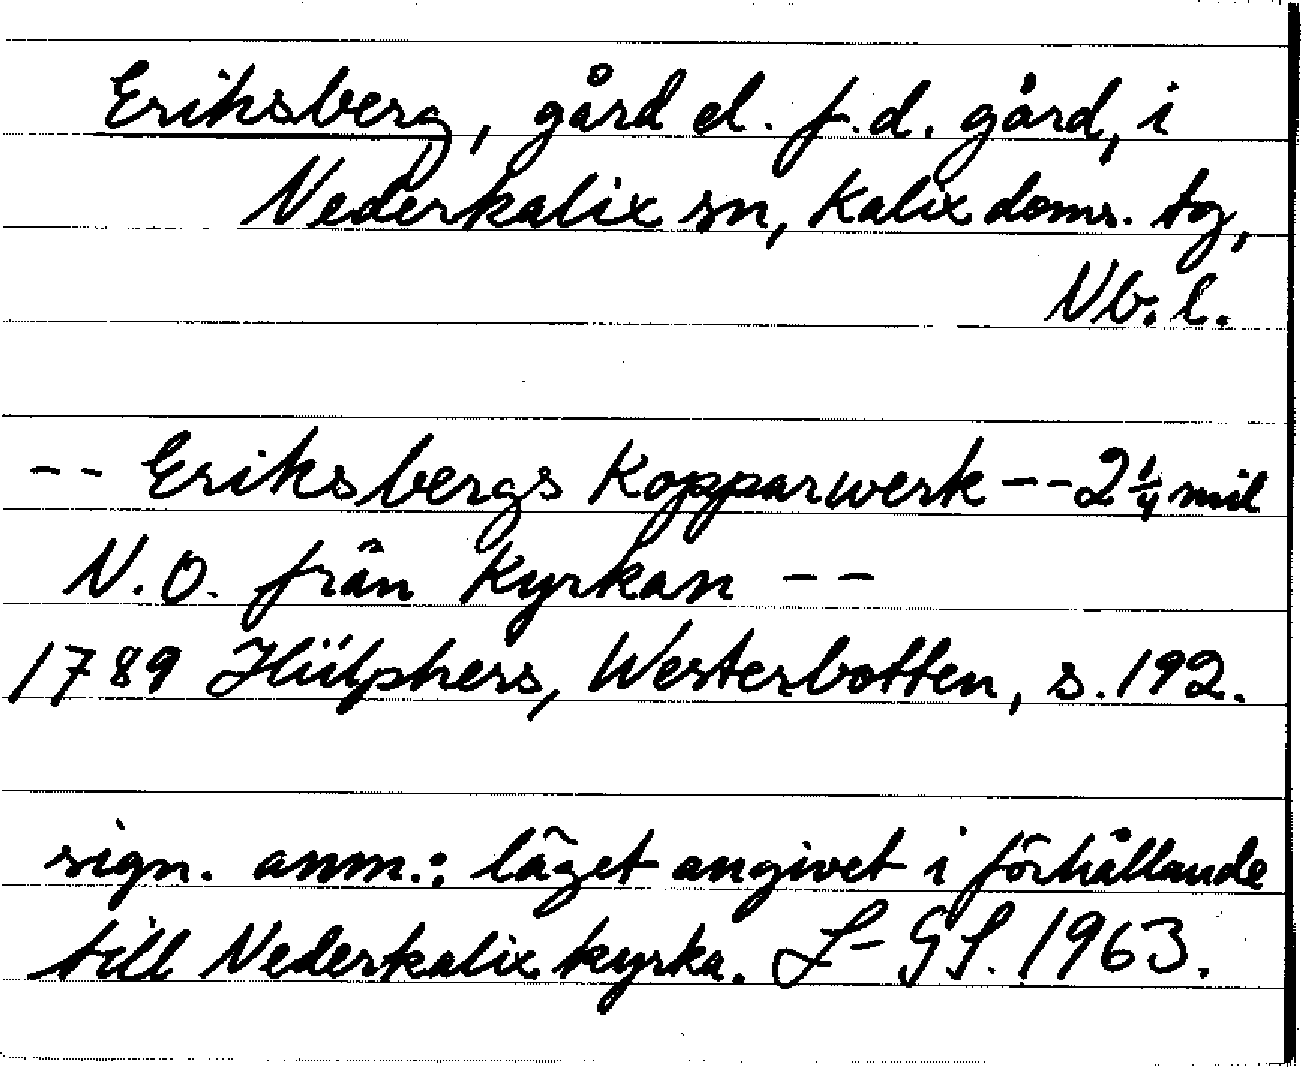 Eriksberg, gård el. f.d. gård, i
Nederkalix sn, Kalix doms. tg,
Nb. l.
-- Eriksbergs Kopparwerk -- 2 1/4 mil
N.O. från Kyrkan --
1789 Hülphers, Westerbotten, s. 192.
sign. anm.: läget angivet i förhållande
till Nederkalix kyrka. L-GS. 1963.